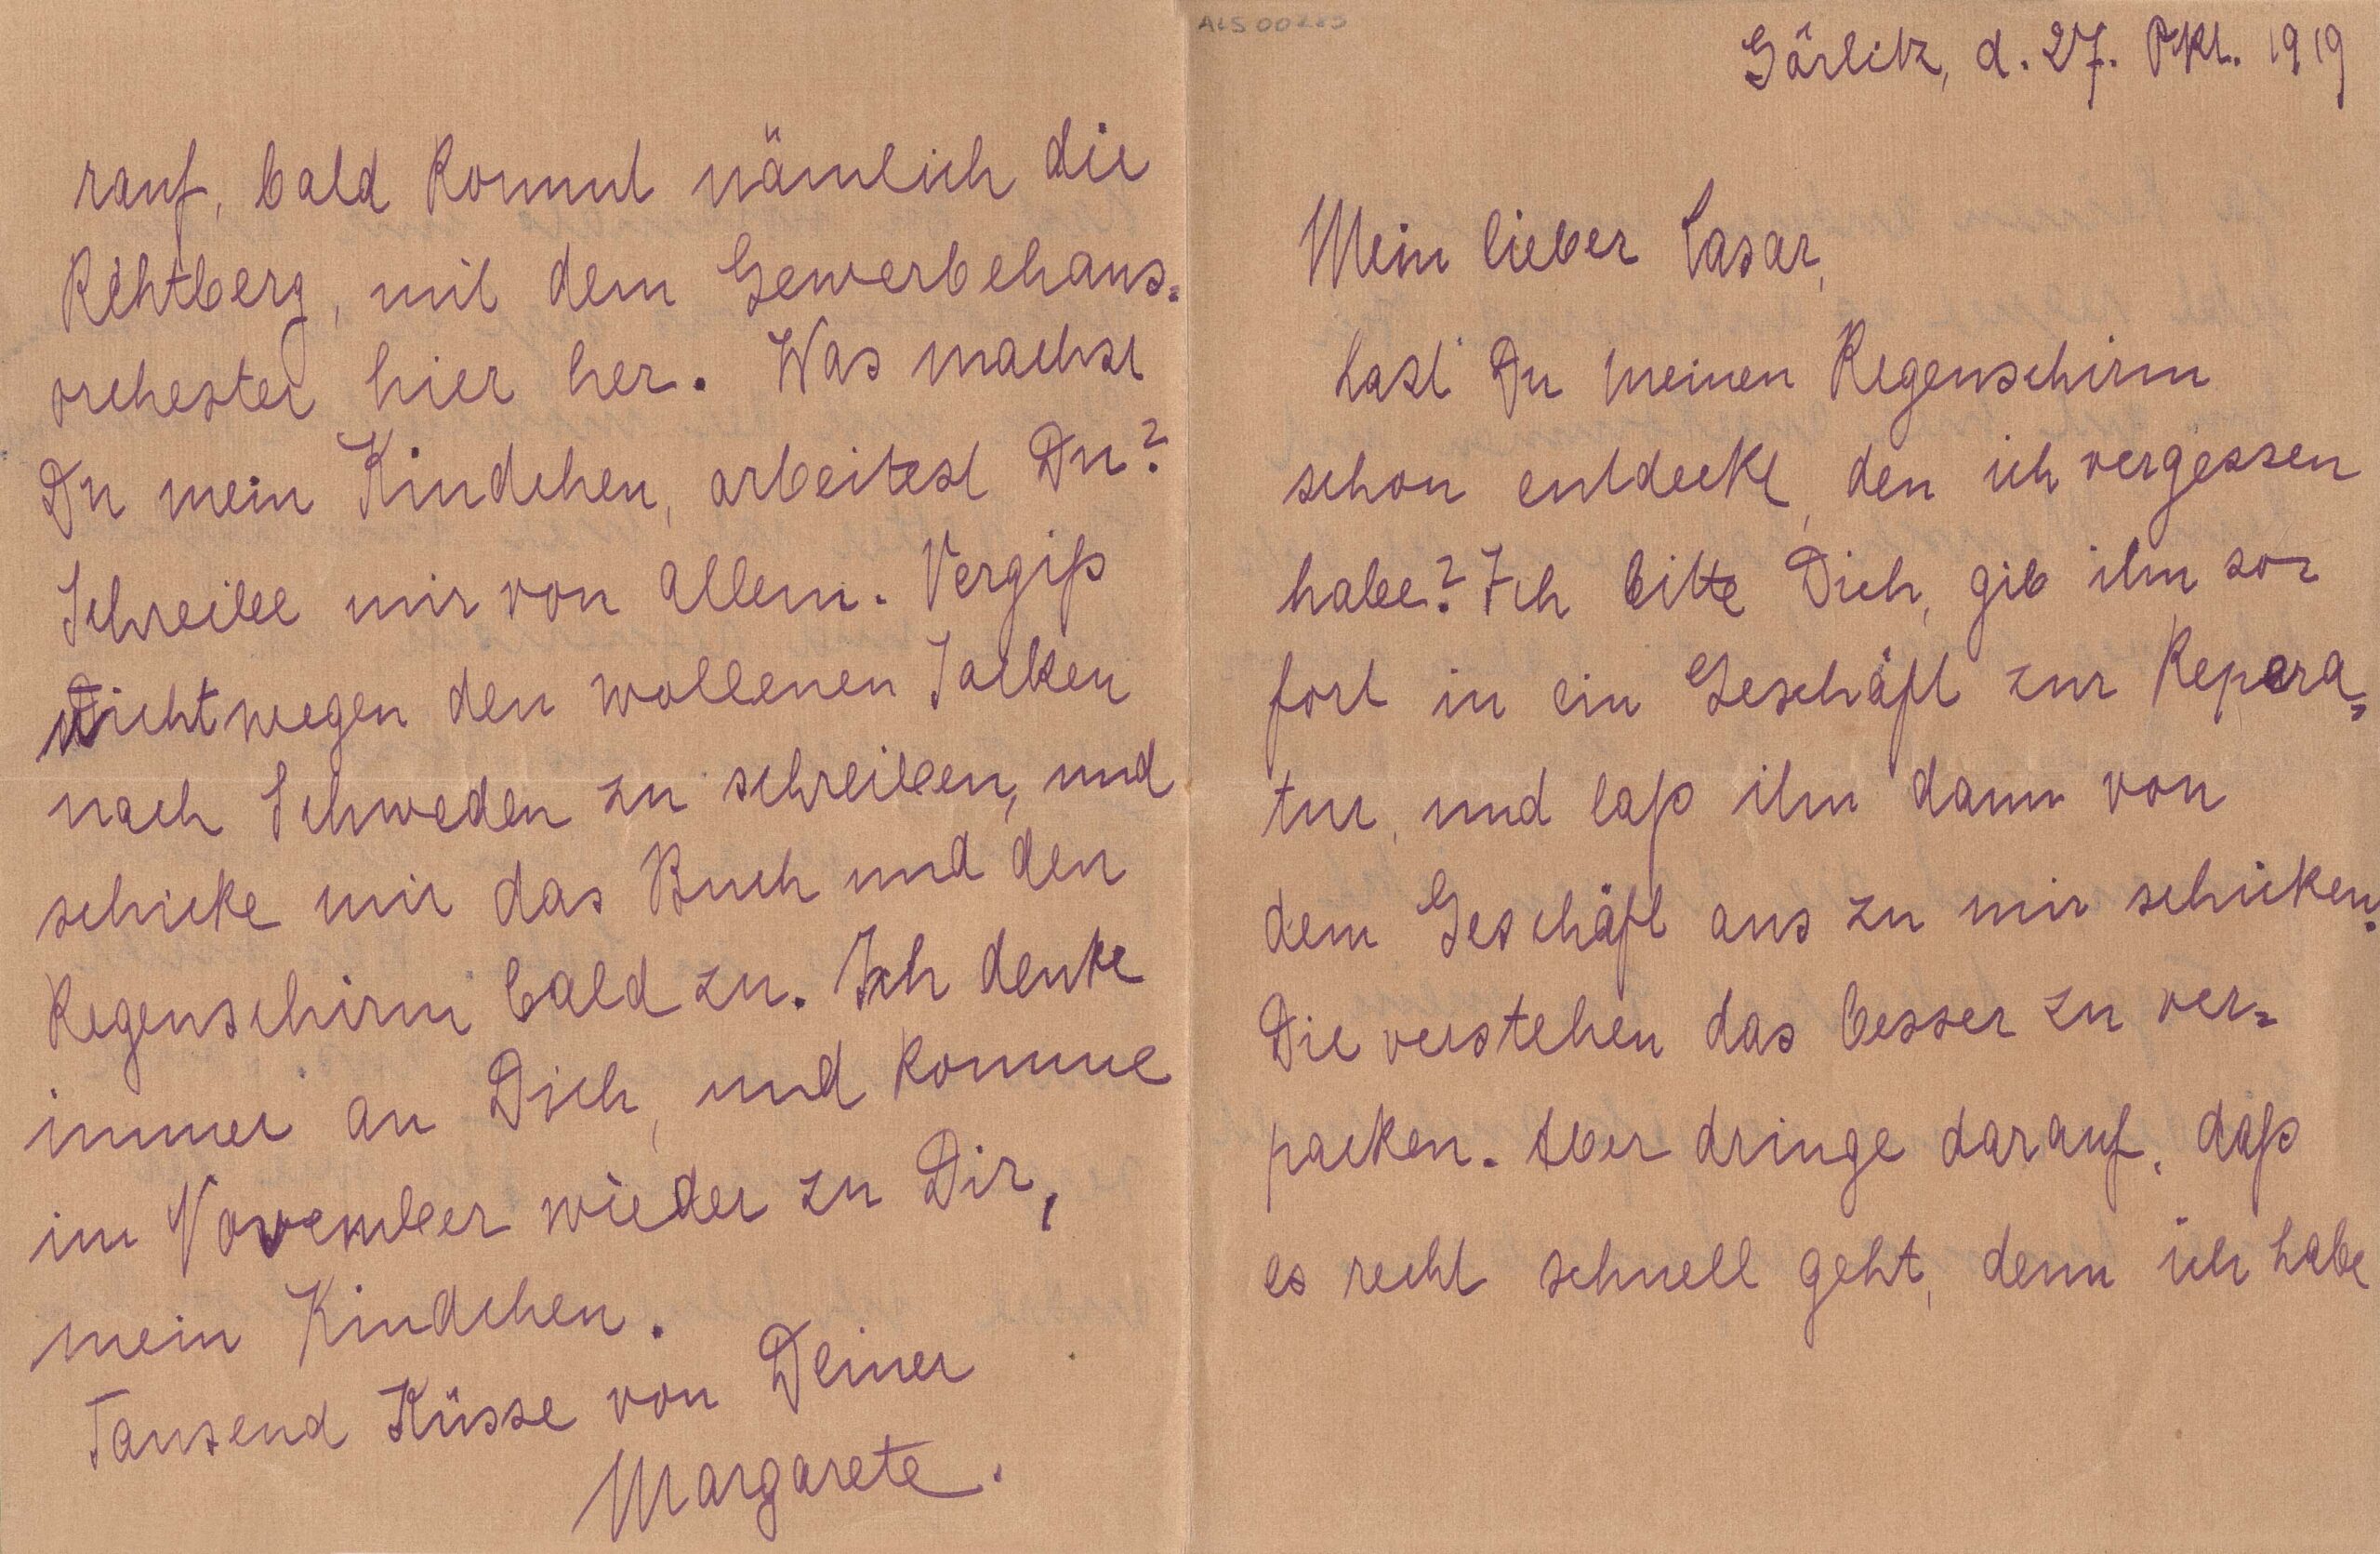 ALS 00285
Görlitz, d. 27. Okt. 1919
Mein lieber Lasar,
hast Du meinen Regenschirm
schon entdeckt, den ich vergessen
habe? Ich bitte Dich, gib ihn so=
fort in ein Geschäft zur Repara=
tur, und laß ihn dann von
dem Geschäft aus zu mir schicken.
Die verstehen das besser zu ver=
packen. Aber dringe darauf, daß
es recht schnell geht, denn ich habe
rauf, bald kommt nämlich die
Rehtberg, mit dem Gewerbehaus=
orchester hier her. Was machst
Du mein Kindchen, arbeitest Du?
Schreibe mir von Allem. Vergiß
nicht wegen den wollenen Jacken
nach Schweden zu schreiben, und
schicke mir das Buch und den
Regenschirm bald zu. Ich denke
immer an Dich, und komme
im November wieder zu Dir,
mein Kindchen.
Tausend Küsse von Deiner
Margarete.